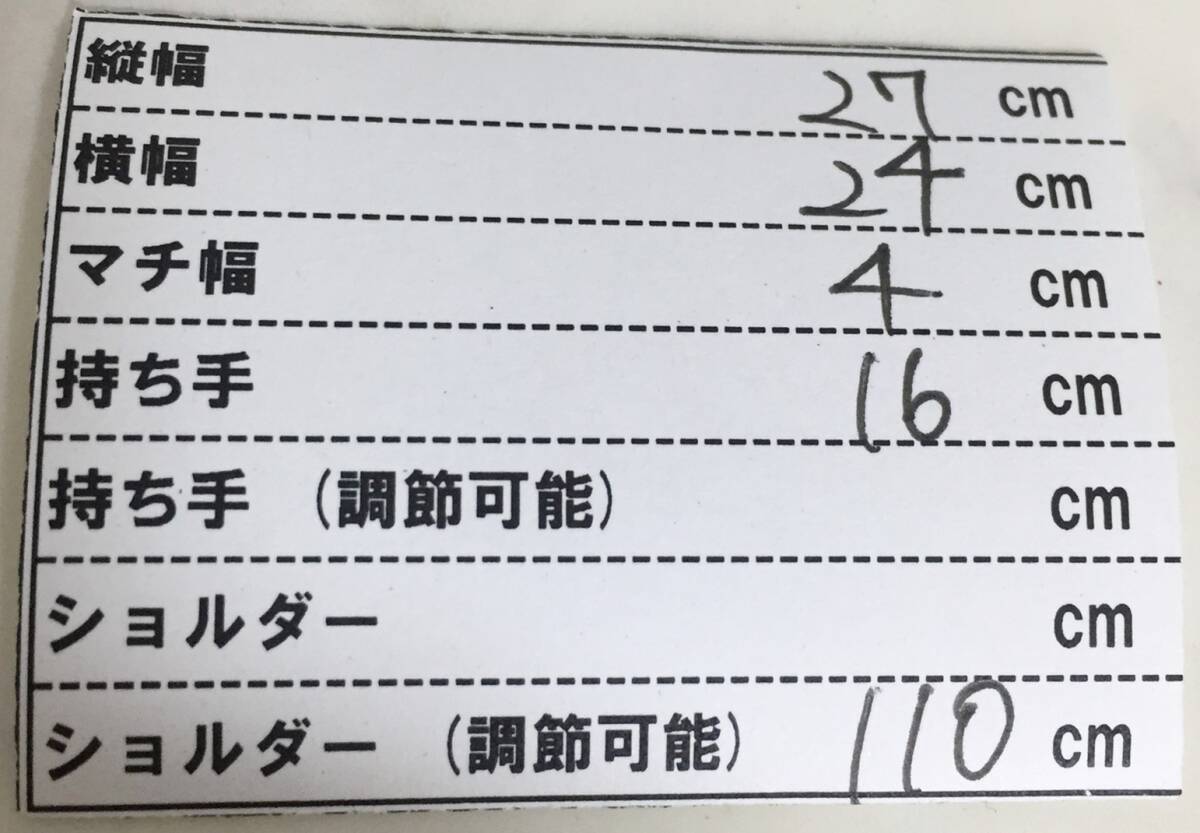 縦幅 27 cm
横幅 24 cm
マチ幅 4 cm
持ち手 16 cm
持ち手 (調節可能) cm
ショルダー cm
ショルダー (調節可能) 110 cm